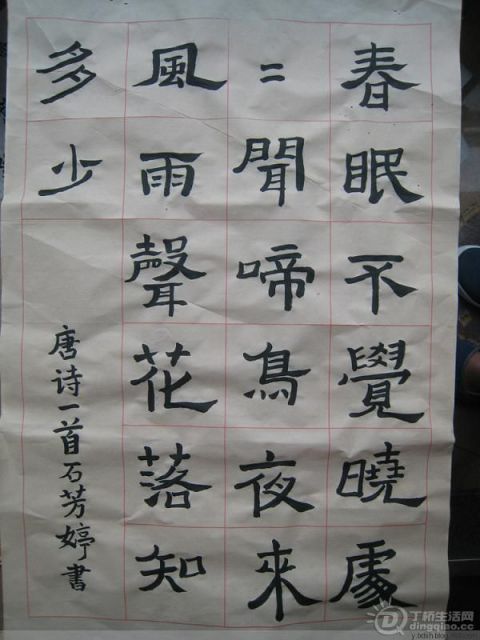 春眠不覺曉處
=聞啼鳥夜來
風雨聲花落知
多少
唐诗一首石芳婷書
D丁桥生活网
dingqiao.cc